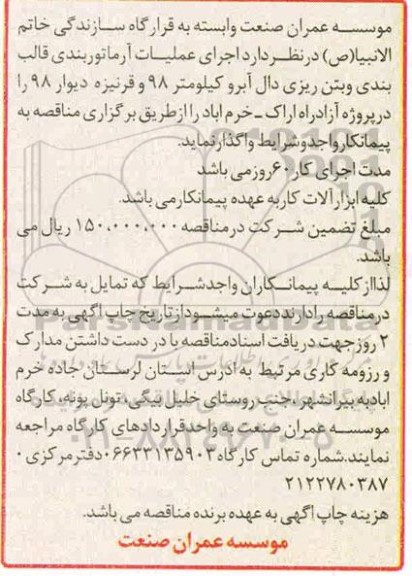 موسسه عمران صنعت وابسته به قرارگاه سازندگی خاتم
الانبیا(ص) درنظردارد اجرای عملیات آرماتوربندی قالب
بندی وبتن ریزی دال آبرو کیلومتر ۹۸ و قرنیزه دیوار ۹۸ را
درپروژه آزادراه اراک - خرم اباد را ازطریق برگزاری مناقصه به
پیمانکارواجدوشرایط واگذارنماید.
مدت اجرای کار ۶۰روزمی باشد
کلیه ابزارآلات کاربه عهده پیمانکارمی باشد.
مبلغ تضمین شرکت درمناقصه ۱۵۰،۰۰۰،۰۰۰ ریال می
باشد.
لذااز کلیه پیمانکاران واجدشرایط که تمایل به شرکت
درمناقصه رادارنددعوت میشودازتاریخ چاپ اگهی به مدت
۲ روزجهت دریافت اسنادمناقصه با در دست داشتن مدارک
و رزومه کاری مرتبط به ادرس استان لرستان جاده خرم
ابادبه بیرانشهر،جنب روستای خلیل بیگی،تونل پونه،کارگاه
موسسه عمران صنعت به واحدقراردادهای کارگاه مراجعه
نمایند.شماره تماس کارگاه ۰۶۶۳۳۱۳۵۹۰۳دفترمرکزی ۰
۲۱۲۲۷۸۰۳۸۷
هزینه چاپ اگهی به عهده برنده مناقصه می باشد.
موسسه عمران صنعت
ParsNamadData
۰۲۱-۸۸۳۴۹۶۷۰-۵